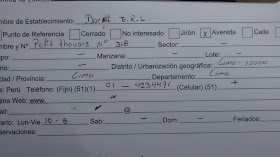 ombre de Establecimiento: Dorsi E.R.L
Punto de Referencia Cerrado No Interesado Jirón X Avenida Calle
ombre y N° Petit thovars N° 318 Sector: -
- Manzana: - Lote: -
- Distrito / Urbanización geográfica: Lima - 15000
udad / Provincia: Lima Departamento: Lima
ís: Perú Teléfono: (Fijo) (51)(1) 01 - 4234471 (Celular) (51) +
agina Web: www.
ail: @
rario: Lun-Vie 10 - 8 Sab: - Dom: - Feriados:
servaciones: